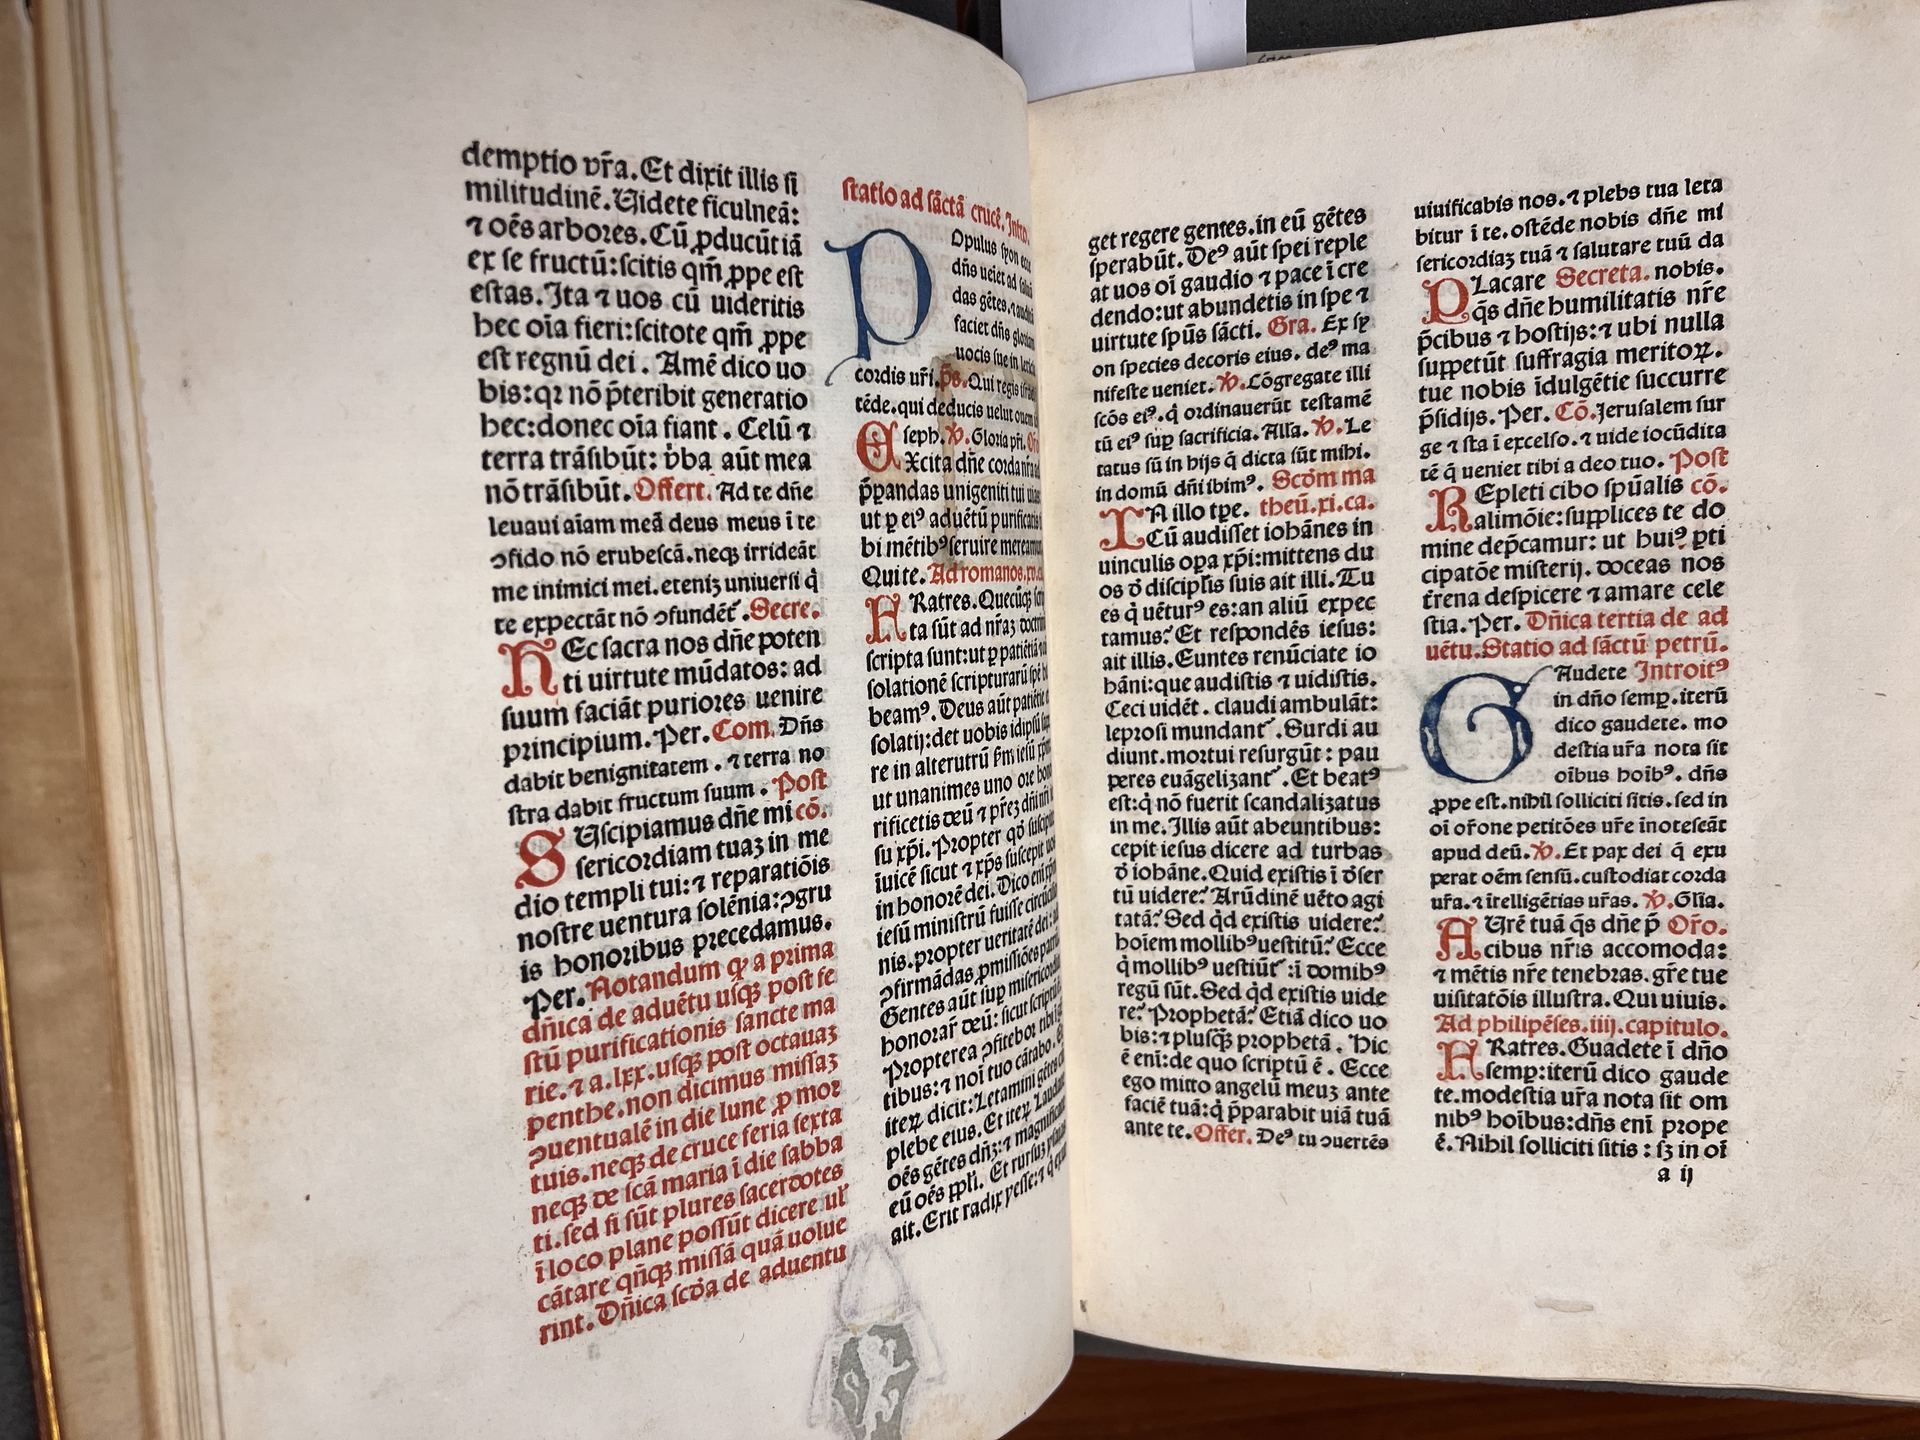 demptio vr̄a. Et dixit illis si
militudinē. Videte ficulneā:
⁊ oēs arbores. Cū ꝓducūt iā
ex se fructū: scitis qm̄ ꝓpe est
estas. Ita ⁊ uos cū uideritis
hec oīa fieri: scitote qm̄ ꝓpe
est regnū dei. Amē dico uo
bis: qꝛ nō p̄teribit generatio
hec: donec oīa fiant. Celū ⁊
terra trāsibūt: v̄ba aūt mea
nō trāsibūt. Offert. Ad te dn̄e
leuaui aīam meā deus meus ī te
ↄfido nō erubescā. neqꝫ irrideāt
me inimici mei. eteniꝫ uniuersi q̇
te expectāt nō ↄfundēt᷑. Secre.
HEc sacra nos dn̄e poten
ti uirtute mūdatos: ad
suum faciāt puriores uenire
principium. Per. Com. Dn̄s
dabit benignitatem. ⁊ terra no
stra dabit fructum suum. Post
SUscipiamus dn̄e mi cō.
sericordiam tuaꝫ in me
dio templi tui: ⁊ reparatiōis
nostre uentura solēnia: ↄgru
is honoribus precedamus.
Per. Notandum qꝫ a prima
dn̄ica de aduētu usqꝫ post fe
stū purificationis sancte ma
rie. ⁊ a. lxx. usqꝫ post octauaꝫ
penthe. non dicimus missaꝫ
ↄuentualē in die lune ꝓ mor
tuis. neqꝫ de cruce feria sexta
neqꝫ de scā maria ī die sabba
ti. sed si sūt plures sacerdotes
ī loco plane possūt dicere ul̄
cātare qn̄qꝫ missā quā uolue
rint. Dn̄ica scd̄a de aduentu
statio ad sāctā crucē. Intro.
POpulus syon ecce
dn̄s ueīet ad
das gētes. ⁊
faciet dn̄s
uocis sue in
cordis ur̄i. ps. Qui regis
tēde. qui deducis uelut ouem
seph. ꝟ. Gloria pr̄i. Or̄o
EXcita dn̄e corda nr̄a ad
p̄pandas unigeniti tui uias
ut ꝑ eiꝰ aduētū purificatis
bi mētibꝰ seruire mereamur
Qui te. Ad romanos. xv. ca
FRatres. Quecūqꝫ
ta sūt ad nr̄aꝫ
scripta sunt: ut ꝑ patiētiā
solationē scripturarū spē
beamꝰ. Deus aūt patiētie
solatij: det uobis idipsū
re in alterutrū
ut unanimes uno ore
rificetis deū ⁊ pr̄eꝫ dn̄i
su xp̄i. Propter qḋ
īuicē sicut ⁊ xp̄s suscepit
in honorē dei. Dico enī
iesū ministrū fuisse
nis. propter ueritatē dei:
ↄfirmādas ꝓmissiōes
Gentes aūt suꝑ
honorar̄ deū: sicut
Propterea ↄfitebor tibi ī
tibus: ⁊ noī tuo cātabo.
iteꝝ dicit: Letamini gētes
plebe eius. Et iteꝝ Laudate
oēs gētes dn̄ꝫ: ⁊
eū oēs ppl̄i. Et rursuꝫ
ait. Erit radix yesse: ⁊ q̇
get regere gentes. in eū gētes
sperabūt. Deꝰ aūt spei reple
at uos oī gaudio ⁊ pace ī cre
dendo: ut abundetis in spe ⁊
uirtute spūs sācti. Gra. Ex sy
on species decoris eius. deꝰ ma
nifeste ueniet. ꝟ. Cōgregate illi
scōs eiꝰ. q̇ ordinauerūt testamē
tū eiꝰ suꝑ sacrificia. Alla. ꝟ. Le
tatus sū in hijs q̄ dicta sūt mihi.
in domū dn̄i ibimꝰ. Scd̄m ma
IN illo tꝑe. theū. xi. ca.
Cū audisset iohānes in
uinculis oꝑa xp̄i: mittens du
os ḋ discipl̄is suis ait illi. Tu
es q̇ uētur̄ꝰ es: an aliū expec
tamus? Et respondēs iesus:
ait illis. Euntes renūciate io
hāni: que audistis ⁊ uidistis.
Ceci uidēt. claudi ambulāt:
leprosi mundant᷑. Surdi au
diunt. mortui resurgūt: pau
peres euāgelizant᷑. Et beatꝰ
est: q̇ nō fuerit scandalizatus
in me. Illis aūt abeuntibus:
cepit iesus dicere ad turbas
ḋ iohāne. Quid existis ī ḋser
tū uidere? Arūdinē uēto agi
tatā? Sed qḋ existis uidere?
hoīem mollibꝰ uestitū? Ecce
q̇ mollibꝰ uestiūt᷑: ī domibꝰ
regū sūt. Sed qḋ existis uide
re? Prophetā? Etiā dico uo
bis: ⁊ plusqꝫ prophetā. Hic
ē enī: de quo scriptū ē. Ecce
ego mitto angelū meuꝫ ante
faciē tuā: q̇ p̄parabit uiā tuā
ante te. Offer. Deꝰ tu ↄuertēs
uiuificabis nos. ⁊ plebs tua leta
bitur ī te. ostēde nobis dn̄e mi
sericordiaꝫ tuā ⁊ salutare tuū da
PLacare Secreta. nobis.
qs̄ dn̄e humilitatis nr̄e
p̄cibus ⁊ hostijs: ⁊ ubi nulla
suppetūt suffragia meritoꝝ.
tue nobis īdulgētie succurre
p̄sidijs. Per. Cō. Jerusalem sur
ge ⁊ sta ī excelso. ⁊ uide iocūdita
tē q̄ ueniet tibi a deo tuo. Post
REpleti cibo spūalis cō.
alimōie: supplices te do
mine dep̄camur: ut huiꝰ ꝑti
cipatōe misterij. doceas nos
t̄rena despicere ⁊ amare cele
stia. Per. Dn̄ica tertia de ad
uētu. Statio ad sāctū petrū.
GAudete Introitꝰ
in dn̄o semꝑ. iterū
dico gaudete. mo
destia ur̄a nota sit
oībus hoībꝰ. dn̄s
ꝓpe est. nihil solliciti sitis. sed in
oī or̄one petitōes ur̄e īnotescāt
apud deū. ꝟ. Et pax dei q̄ exu
perat oēm sensū. custodiat corda
ur̄a. ⁊ ītelligētias ur̄as. ꝟ. Glīa.
AUrē tuā qs̄ dn̄e p̄ Or̄o.
cibus nr̄is accomoda:
⁊ mētis nr̄e tenebras. gr̄e tue
uisitatōis illustra. Qui uiuis.
Ad philipēses. iiij. capitulo.
FRatres. Guadete ī dn̄o
semꝑ: iterū dico gaude
te. modestia ur̄a nota sit om
nibꝰ hoībus: dn̄s enī prope
ē. Nihil solliciti sitis: sꝫ in oī
a ij